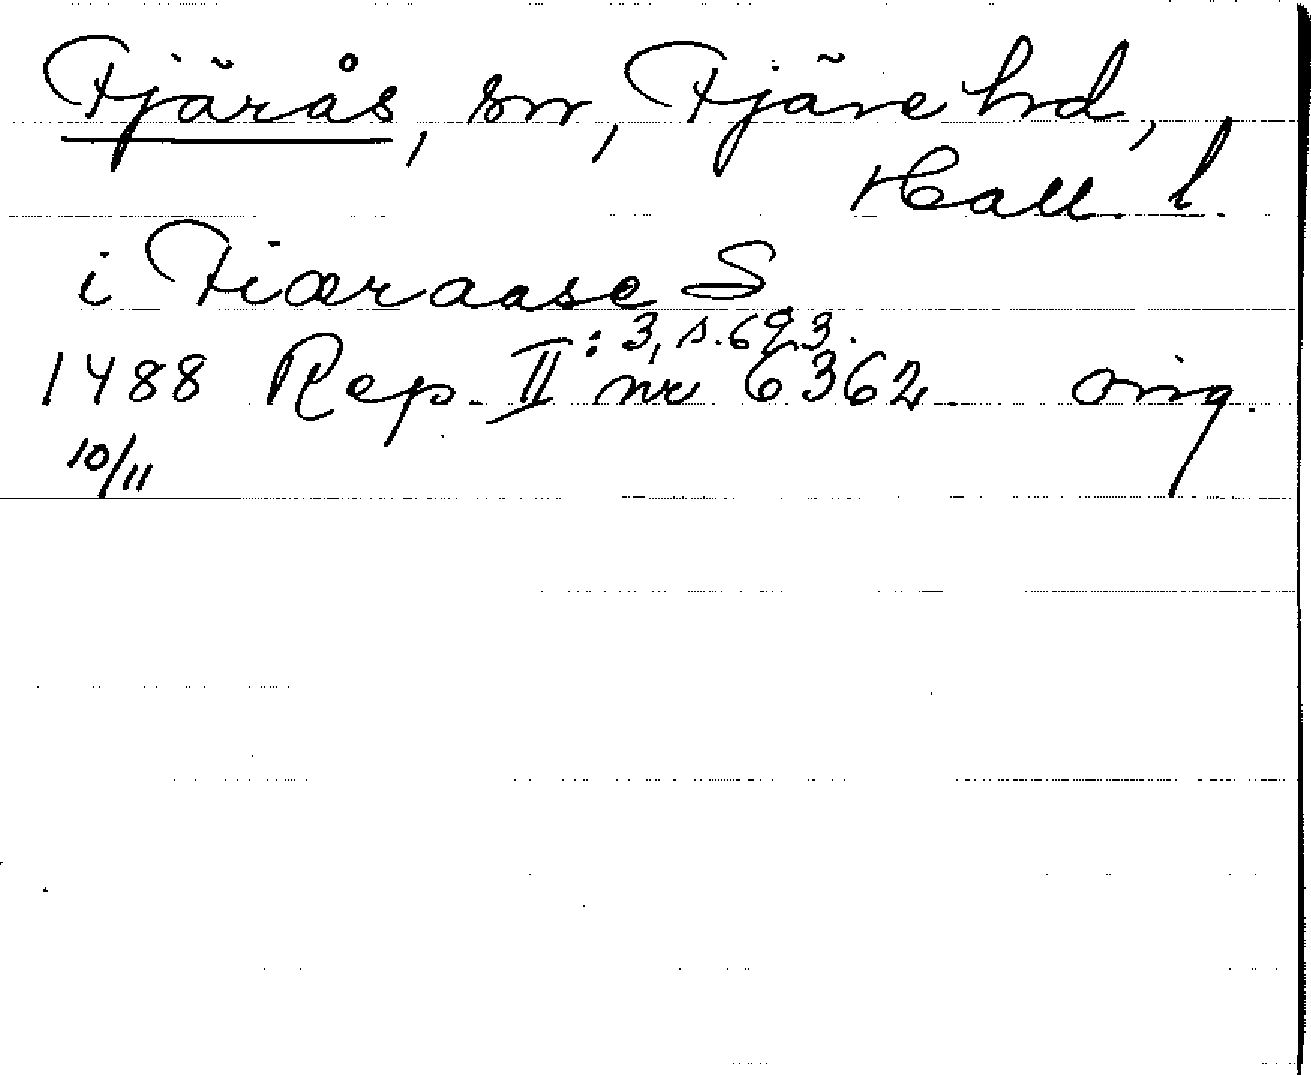 Fjärås, sn, Fjäre hd,
Hall. l.
i Fiæraase S
1488 Rep. II:3, s.693. nr 6362 orig.
10/11